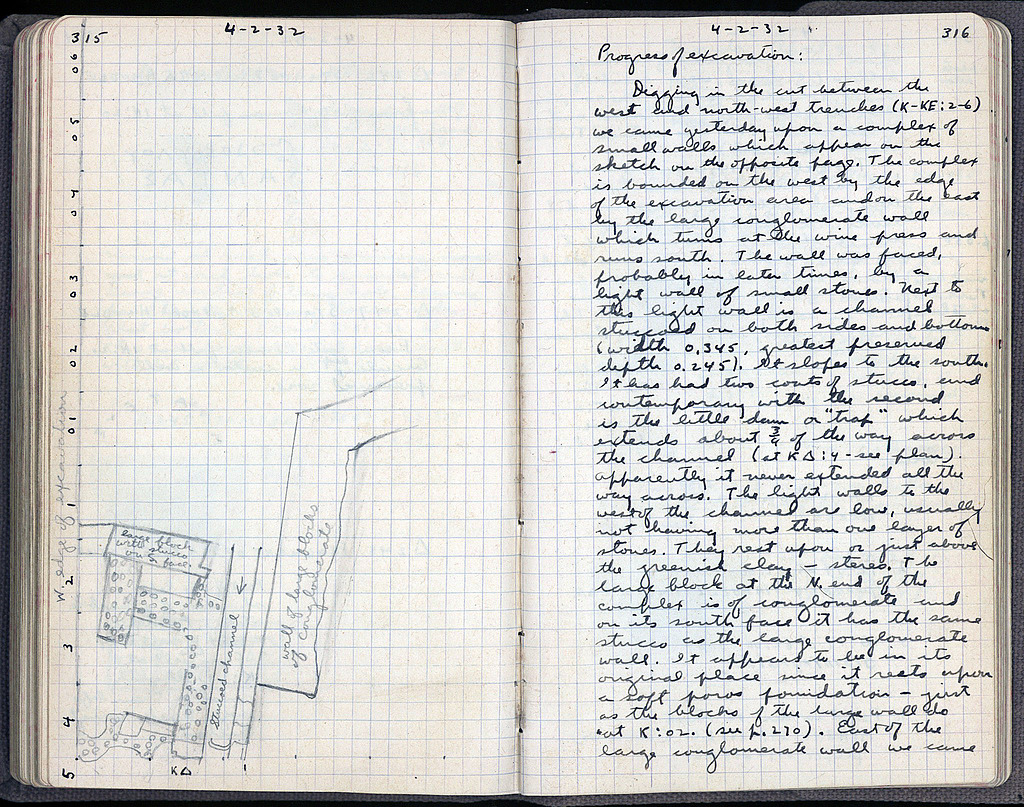 315
4-2-32
06
05
04
03
02
01
1
2
3
4
5
W edge of excavation
large block
with stucco
on S face.
wall of large blocks
of conglomerate
Stuccoed channel
KΔ
4-2-32
316
Progress of excavation:
Digging in the cut between the
west and north-west trenches (K-KE:2-6)
we came yesterday upon a complex of
small walls which appear on the
sketch on the opposite page. The complex
is bounded on the west by the edge
of the excavation area and on the east
by the large conglomerate wall
which turns at the wine press and
runs south. The wall was faced,
probably in later times, by a
light wall of small stones. Next to
this light wall is a channel
stuccoed on both sides and bottom
(width 0.345, greatest preserved
depth 0.245). It slopes to the south.
It has had two coats of stucco, and
contemporary with the second
is the little dam or "trap" which
extends about 3/4 of the way across
the channel (at KΔ:4 - see plan).
apparently it never extended all the
way across. The light walls to the
west of the channel are low, usually
not having more than one layer of
stones. They rest upon or just above
the greenish clay - stereo. The
large block at the N. end of the
complex is of conglomerate and
on its south face it has the same
stucco as the large conglomerate
wall. It appears to be in its
original place since it rests upon
a soft poros foundation - just
as the blocks of the large wall do
at K:02. (see p. 270). East of the
large conglomerate wall we came